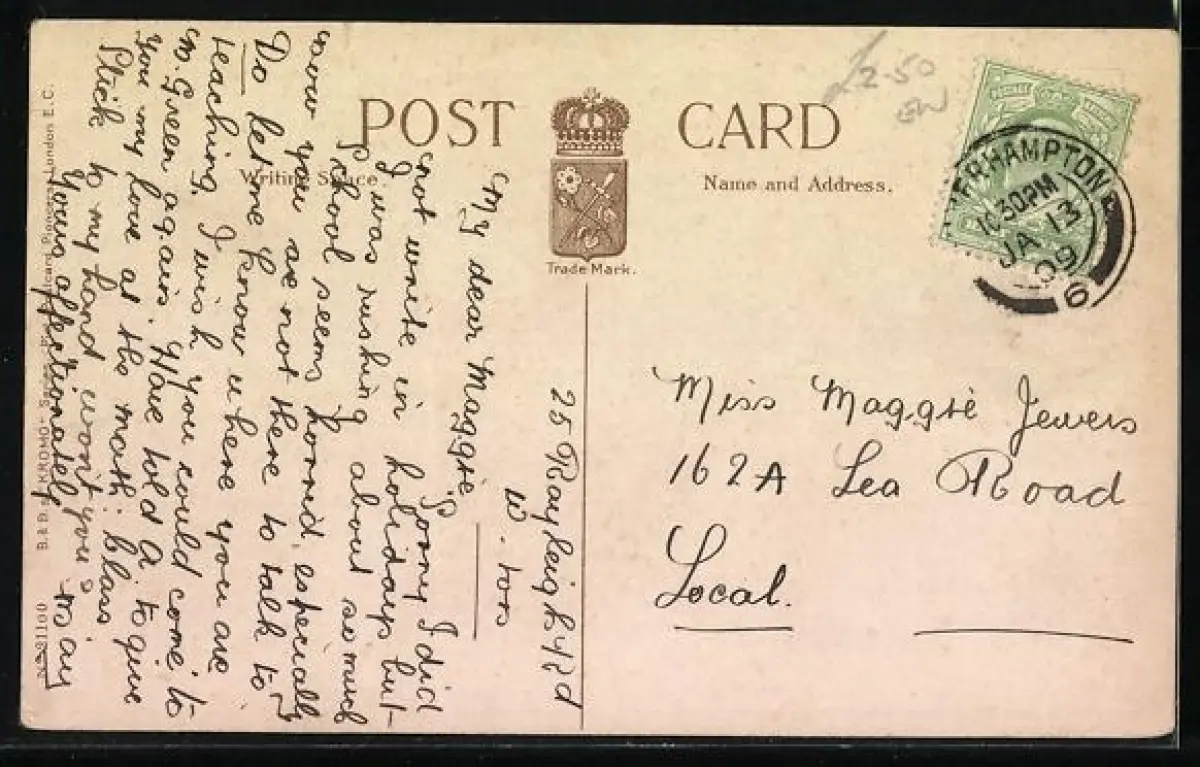 POST CARD
Writing Space.
Name and Address.
Trade Mark.
£2-50
ERHAMPTON
10 30 PM
JA 13
09
6
Miss Maggie Jewers
162A Lea Road
Local.
25 Rayleigh Rd
W. tons
My dear Maggie,
Sorry I did
not write in holidays but
I was rushing about so much
School seems horrid, especially
now you are not there to talk to
Do let me know where you are
teaching, I wish you could come to
M. Green again. Have told A to give
you my love at the math: class
Stick to my hand won't you?
Yours affectionately
B. & D. KROMO
London E.C.
No 21100